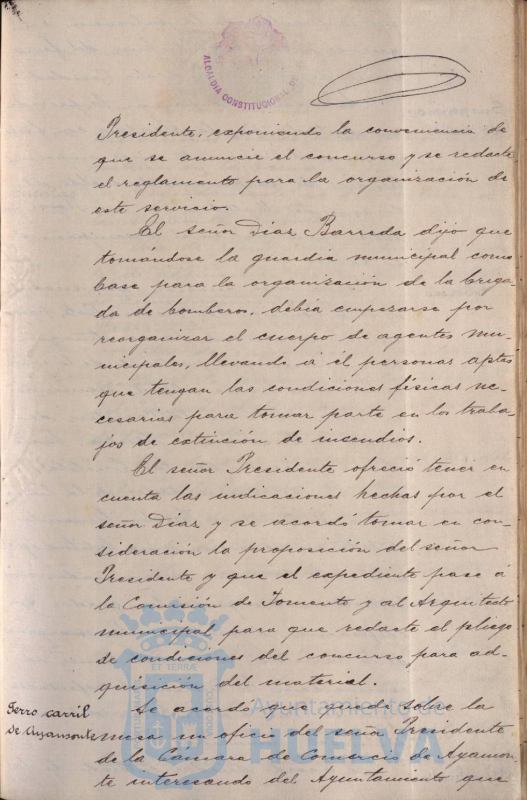 ALCALDIA CONSTITUCIONAL DE
Presidente, exponiendo la conveniencia de
que se anuncie el concurso y se redacte
el reglamento para la organización de
este servicio.
El señor Diaz Barreda dijo que
tomándose la guardia municipal como
base para la organización de la briga
da de bomberos, debía empezarse por
reorganizar el cuerpo de agentes mu-
nicipales, llevando á él personas aptas
que tengan las condiciones físicas ne-
cesarias para tomar parte en los traba-
jos de extinción de incendios.
El señor Presidente ofreció tener en
cuenta las indicaciones hechas por el
señor Diaz y se acordó tomar en con-
sideración la proposición del señor
Presidente y que el expediente pase á
la Comisión de Fomento y al Arquitecto
municipal para que redacte el pliego
de condiciones del concurso para ad-
quisición del material.
Ferro carril
de Ayamonte
Se acordó que quede sobre la
mesa un oficio del señor Presidente
de la Cámara de Comercio de Ayamon-
te interesando del Ayuntamiento que
ET TERRÆ
Ayuntamiento de
HUELVA